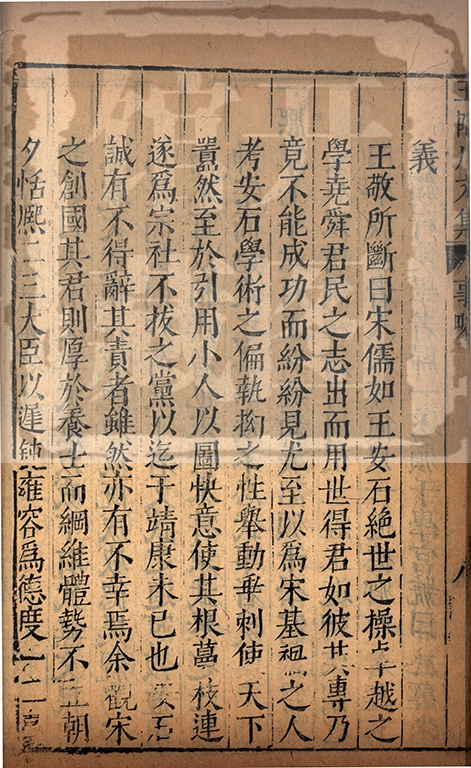 義
王敬所斷曰宋儒如王安石絕世之操卓越之
學堯舜君民之志出而用世得君如彼其專乃
竟不能成功而紛紛見尤至以為宋基禍之人
考安石學術之偏執拗之性舉動乖刺使天下
囂然至於引用小人以圖快意使其根蔓枝連
遂爲宗社不拔之黨以迄于靖康未已也安石
誠有不得辭其責者雖然亦有不幸焉余觀宋
之創國其君則厚於養士而綱維體勢不立朝
夕恬熙二三大臣以遲鈍雍容爲德度一二